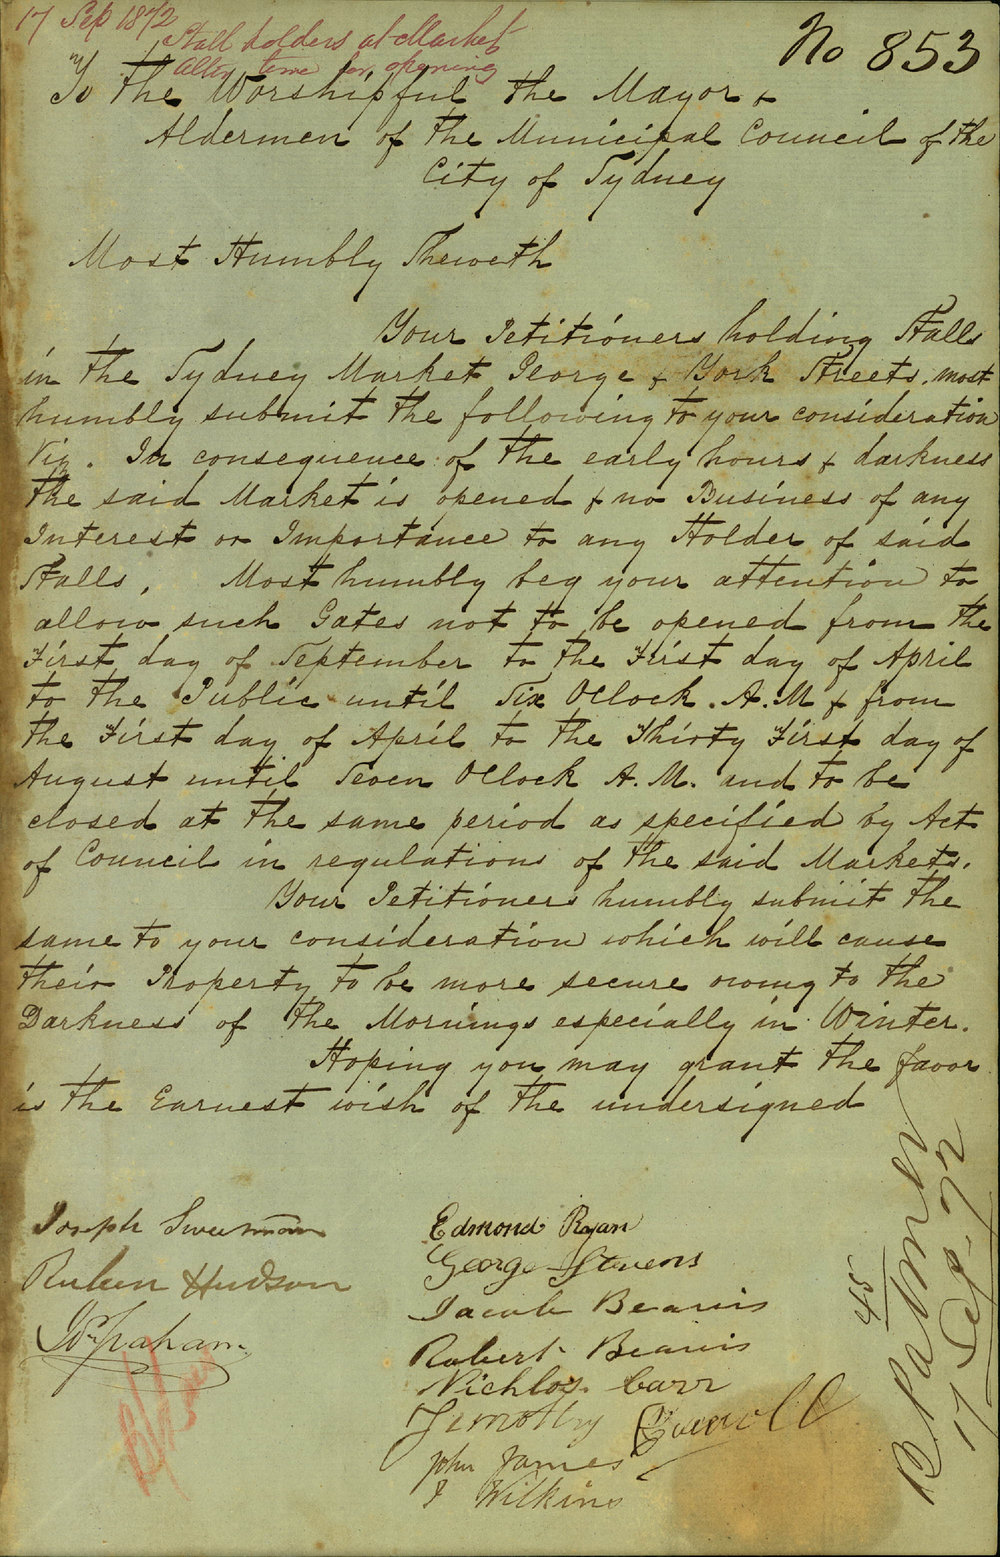 17 Sep 1872
Stall holders at Market
Alter time for opening
No 853
To the Worshipful the Mayor &
Aldermen of the Municipal Council of the
City of Sydney
Most Humbly Sheweth
Your Petitioners holding Stalls
in the Sydney Market George & York Streets. most
humbly submit the following to your consideration
Viz. In consequence of the early hours & darkness
the said Market is opened & no Business of any
Interest or Importance to any Holder of said
Stalls, Most humbly beg your attention to
allow such Gates not to be opened from the
First day of September to the First day of April
to the Public until Six OClock. A.M & from
the First day of April to the Thirty First day of
August until Seven OClock A.M. and to be
closed at the same period as specified by Act
of Council in regulations of the said Markets.
Your Petitioners humbly submit the
same to your consideration which will cause
their Property to be more secure owing to the
Darkness of the Mornings especially in Winter.
Hoping you may grant the favor
is the Earnest wish of the undersigned
Joseph
Ruben Hudson
Graham
Edmond Ryan
George Stevens
Jacob Beavis
Robert Beavis
Nichlos Carr
Timothy
John James
J Wilkins
45
B Palmer
17 Sep 72